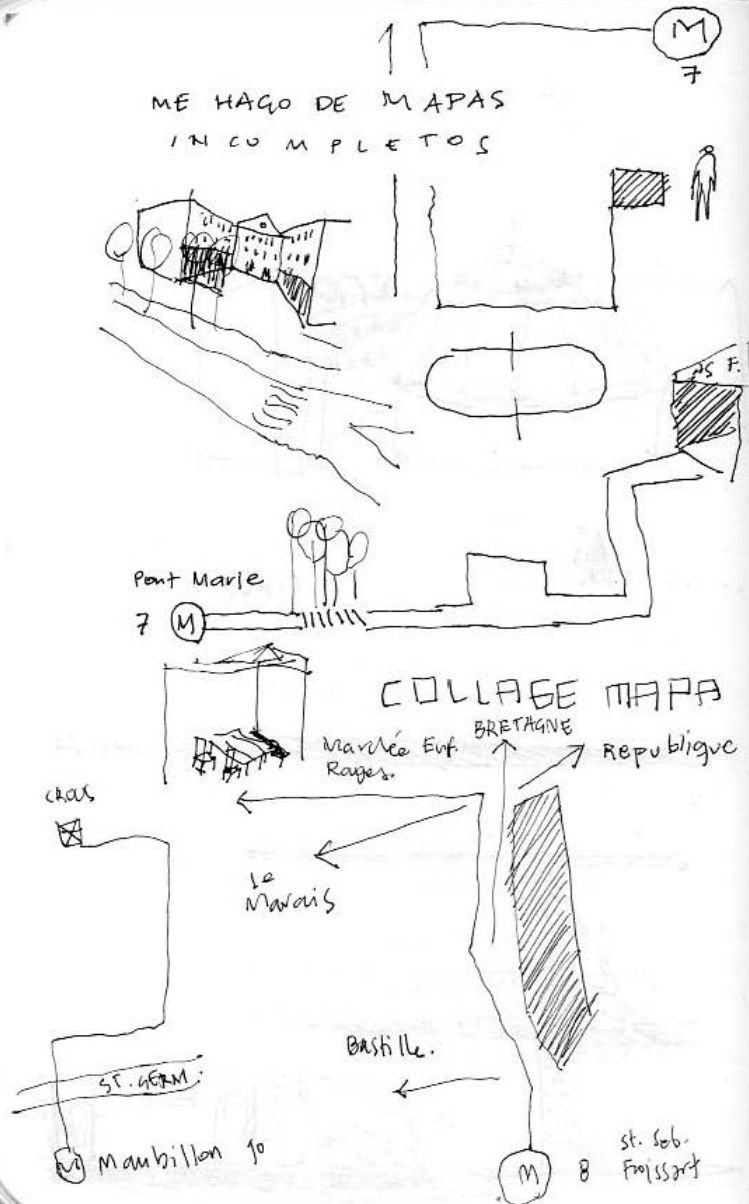 M
7
ME HAGO DE MAPAS
INCOMPLETOS
Pont Marie
7 M
COLLAGE MAPA
BRETAGNE
Republique
Marchée Enf.
Roges.
CROUS
le
Marais
Bastille.
ST. GERM.
M Maubillon 10
M 8
St. Seb.
Froissart